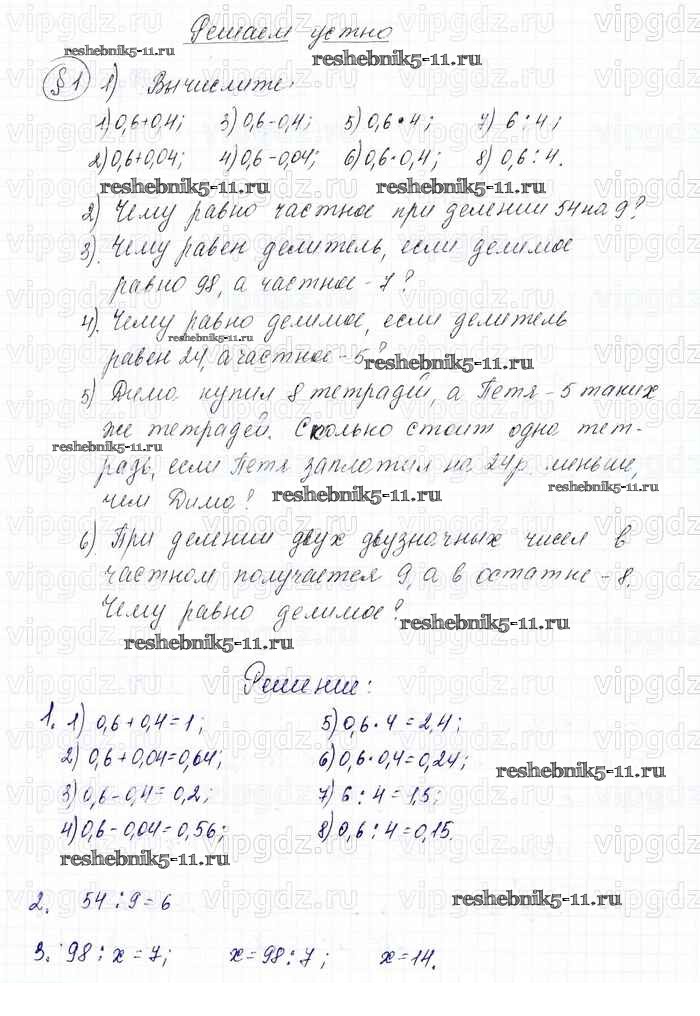 Решаем устно
reshebnik5-11.ru reshebnik5-11.ru
§ 1 1) Вычислите:
1) 0,6+0,4; 3) 0,6-0,4; 5) 0,6•4; 7) 6:4;
2) 0,6+0,04; 4) 0,6-0,04; 6) 0,6•0,4; 8) 0,6:4.
reshebnik5-11.ru reshebnik5-11.ru
2) Чему равно частное при делении 54 на 9?
3). Чему равен делитель, если делимое
равно 98, а частное - 7?
4). Чему равно делимое, если делитель
reshebnik5-11.ru
равен 24, а частное - 5?
reshebnik5-11.ru
5) Дима купил 8 тетрадей, а Петя - 5 таких
же тетрадей. Сколько стоит одна тет-
reshebnik5-11.ru
радь, если Петя заплатил на 24 р. меньше,
reshebnik5-11.ru
чем Дима?
reshebnik5-11.ru
6) При делении двух двузначных чисел в
частном получается 9, а в остатке - 8.
Чему равно делимое?
reshebnik5-11.ru
reshebnik5-11.ru
Решение:
1. 1) 0,6+0,4=1; 5) 0,6•4=2,4;
2) 0,6+0,04=0,64; 6) 0,6•0,4=0,24;
reshebnik5-11.ru
3) 0,6-0,4=0,2; 7) 6:4=1,5;
4) 0,6-0,04=0,56; 8) 0,6:4=0,15.
reshebnik5-11.ru
2. 54:9=6
reshebnik5-11.ru
3. 98:x=7; x=98:7; x=14.